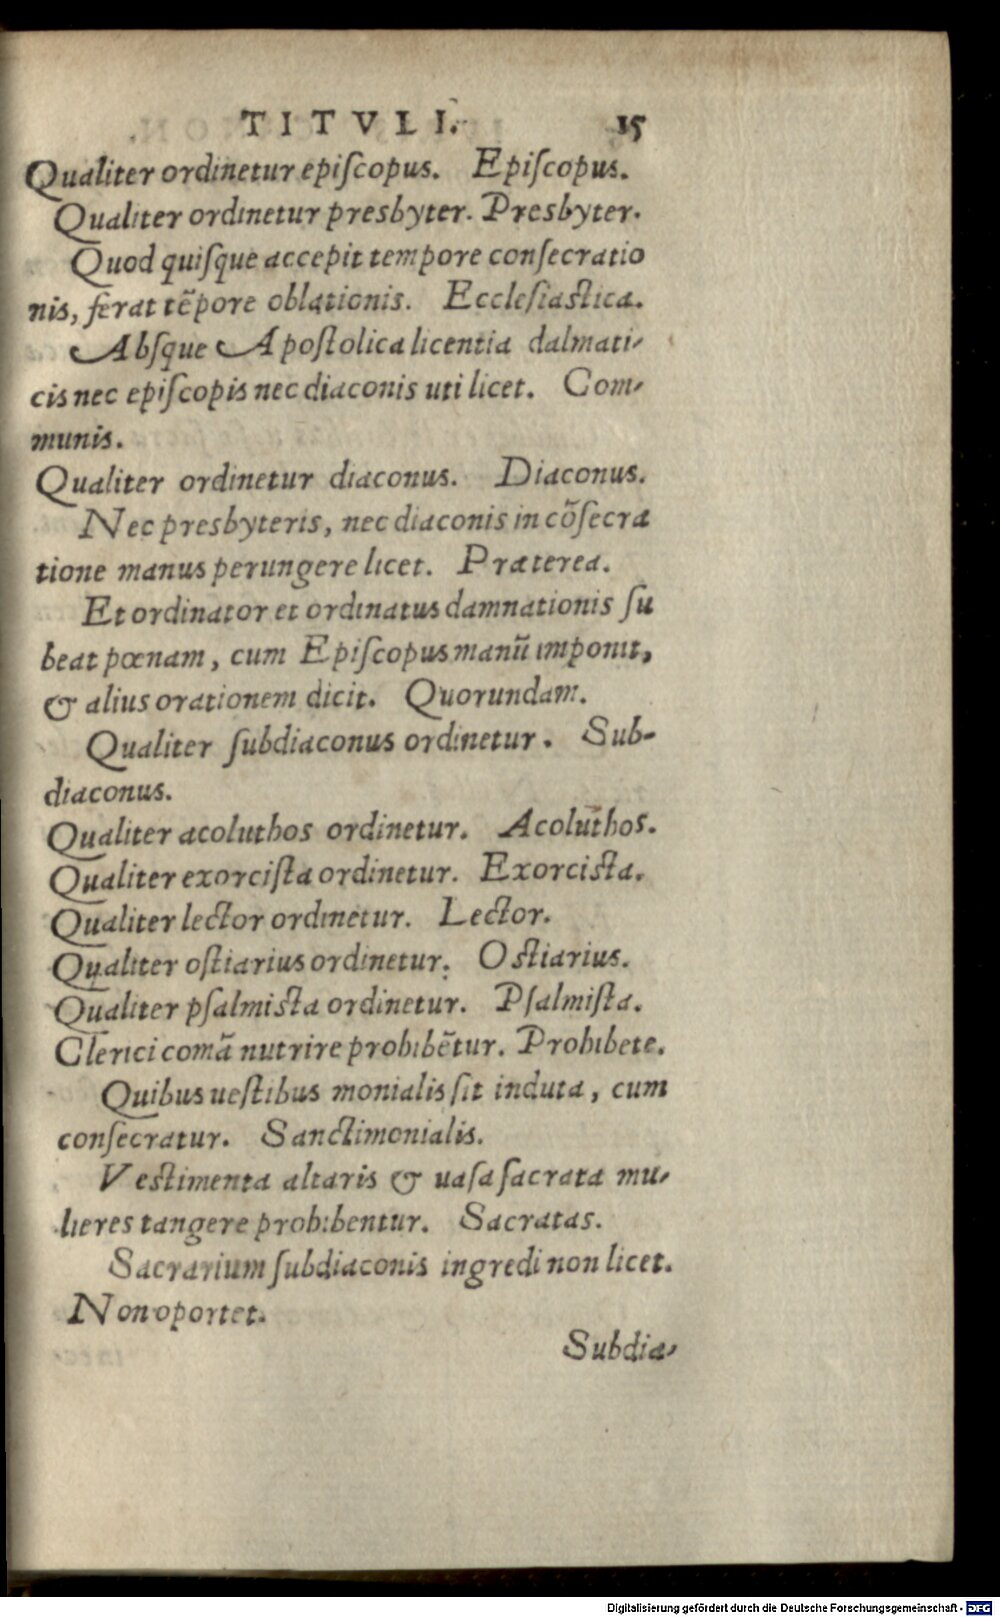 TITVLI. 15
Qualiter ordinetur epiſcopus. Epiſcopus.
Qualiter ordinetur presbyter. Presbyter.
Quod quiſque accepit tempore conſecratio
nis, ferat tẽpore oblationis. Eccleſiaſtica.
Abſque Apoſtolica licentia dalmati-
cis nec epiſcopis nec diaconis uti licet. Com-
munis.
Qualiter ordinetur diaconus. Diaconus.
Nec presbyteris, nec diaconis in cõſecra
tione manus perungere licet. Præterea.
Et ordinator et ordinatus damnationis ſu
beat pœnam, cum Epiſcopus manũ imponit,
& alius orationem dicit. Quorundam.
Qualiter ſubdiaconus ordinetur. Sub-
diaconus.
Qualiter acoluthos ordinetur. Acoluthos.
Qualiter exorciſta ordinetur. Exorciſta.
Qualiter lector ordinetur. Lector.
Qualiter oſtiarius ordinetur. Oſtiarius.
Qualiter pſalmiſta ordinetur. Pſalmiſta.
Clerici comã nutrire prohibẽtur. Prohibete.
Quibus ueſtibus monialis ſit induta, cum
conſecratur. Sanctimonialis.
Veſtimenta altaris & uaſa ſacrata mu-
lieres tangere prohibentur. Sacratas.
Sacrarium ſubdiaconis ingredi non licet.
Non oportet.
Subdia-
Digitalisierung gefördert durch die Deutsche Forschungsgemeinschaft - DFG